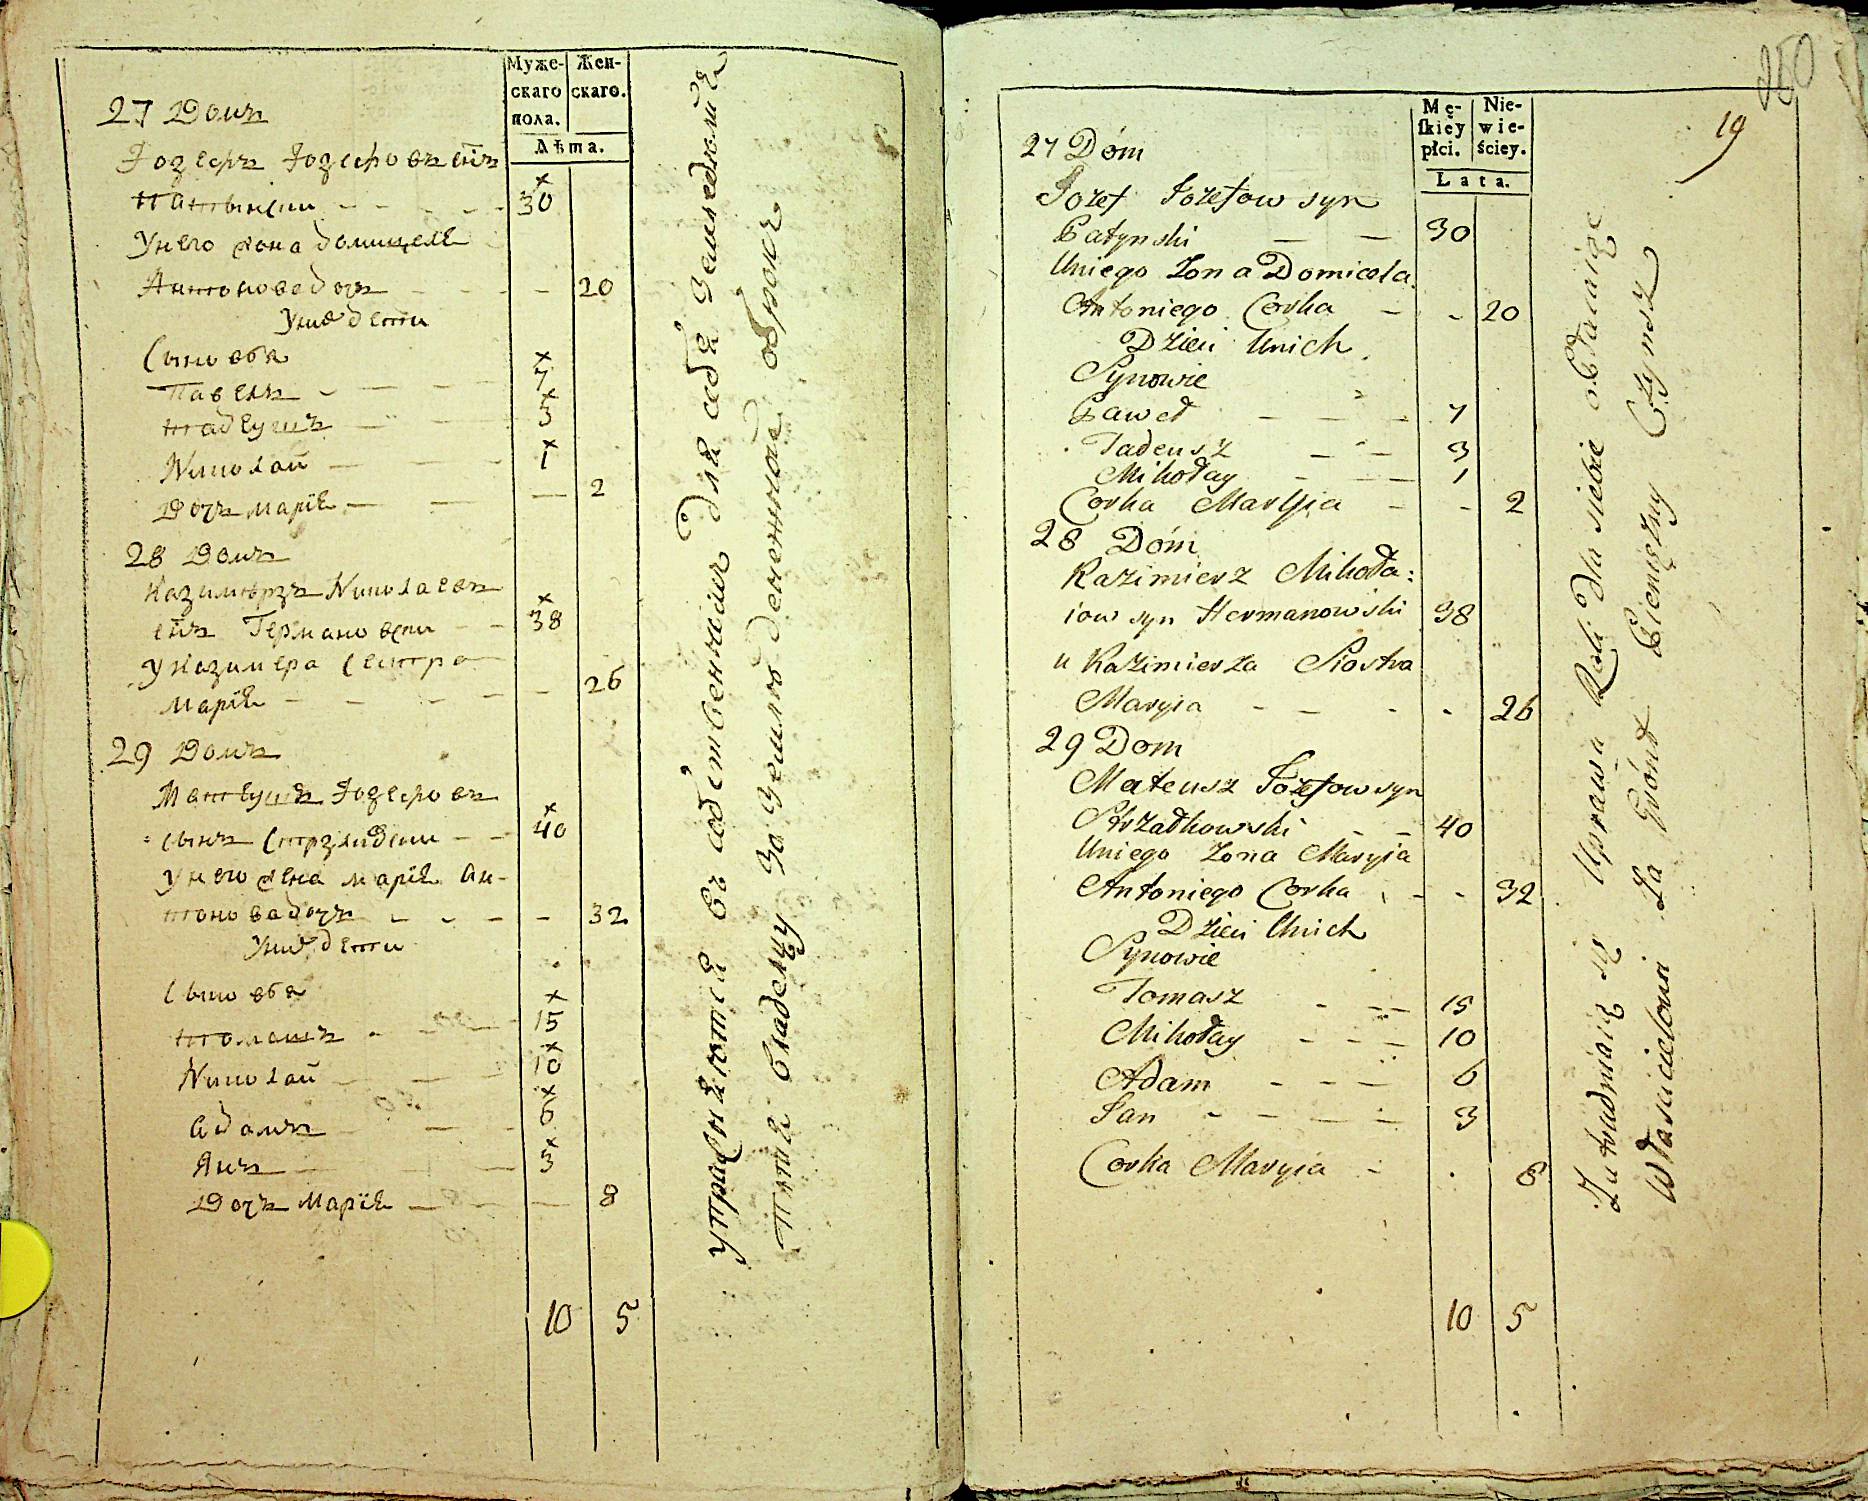 Муже-
скаго
пола.
Жен-
скаго.
Лѣта.
27 Домъ
Іозефъ Іозефовъ сынъ
Патынски 30
У него жона Домицеля
Антонова дочь 20
У них дети
Сыновья
Павелъ 7
Тадеушъ 3
Николай 1
Дочь Марія 2
28 Домъ
Казимѣрзъ Николаевъ
сынъ Германовски 38
У Казимера сестра
Марія 26
29 Домъ
Матеушъ Іозефовъ
сынъ 40
У него жена Марія Ан-
тонова дочь 32
У них дети
Сыновья
Томашъ 15
Николай 10
Адамъ 6
Янъ 3
Дочь Марія 8
10 5
упражняются въ собственнаи для себя земледелия
платя владелцу за землю денежнай оброкъ
250
19
Mę-
skiéy
płci.
Nie-
wie-
ściey.
Lata.
27 Dóm
Jozef Jozefow syn
Patynski 30
Uniego Zona Domicela
Antoniego Corka 20
Dzieci Unich
Synowie
Paweł 7
Tadeusz 3
Mikołay 1
Corka Maryia 2
28 Dóm
Kazimierz Mikoła:
iow syn Hermanowski 38
u Kazimierza Siostra
Maryia 26
29 Dom
Mateusz Jozefow syn
Strzadkowski 40
Uniego Zona Maryia
Antoniego Corka 32
Dzieci Unich
Synowie
Tomasz 15
Mikołay 10
Adam 6
Jan 3
Corka Maryia 8
10 5
Zatrudniaią się Uprawą Roli dla siebie oddaiąc
Właścicielowi za Grónt Pieniężny Czynsz